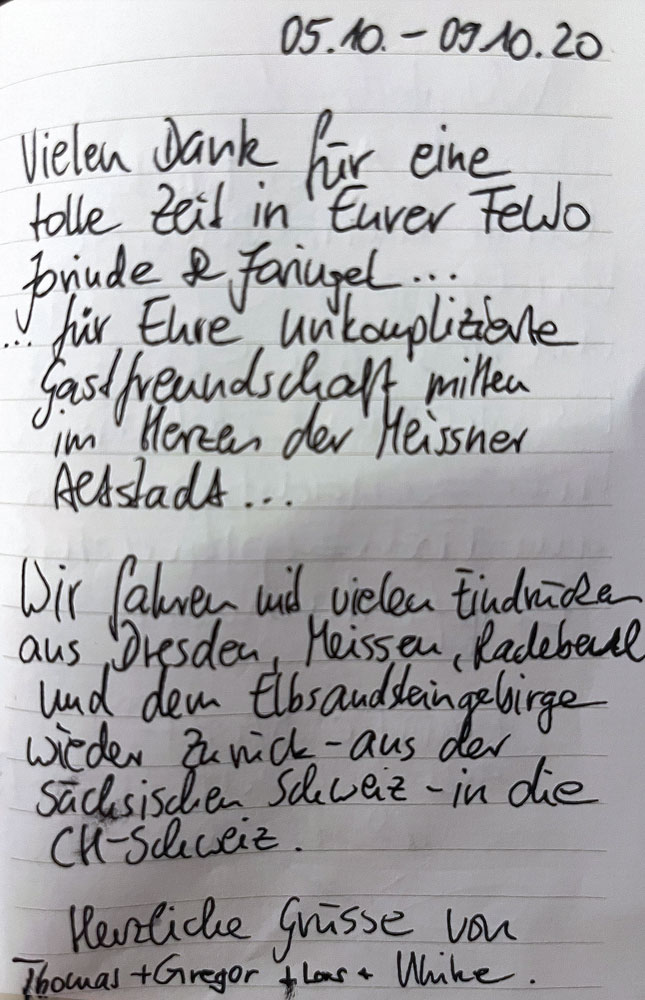 05.10. - 09.10.20
Vielen Dank für eine
tolle Zeit in Eurer FeWo
Jorinde & Joringel...
... für Eure unkomplizierte
Gastfreundschaft mitten
im Herzen der Meissner
Altstadt...
Wir fahren mit vielen Eindrücken
aus Dresden, Meissen, Radebeul
und dem Elbsandsteingebirge
wieder zurück - aus der
Sächsischen Schweiz - in die
CH-Schweiz.
Herzliche Grüsse von
Thomas + Gregor + Lars + Ulrike.